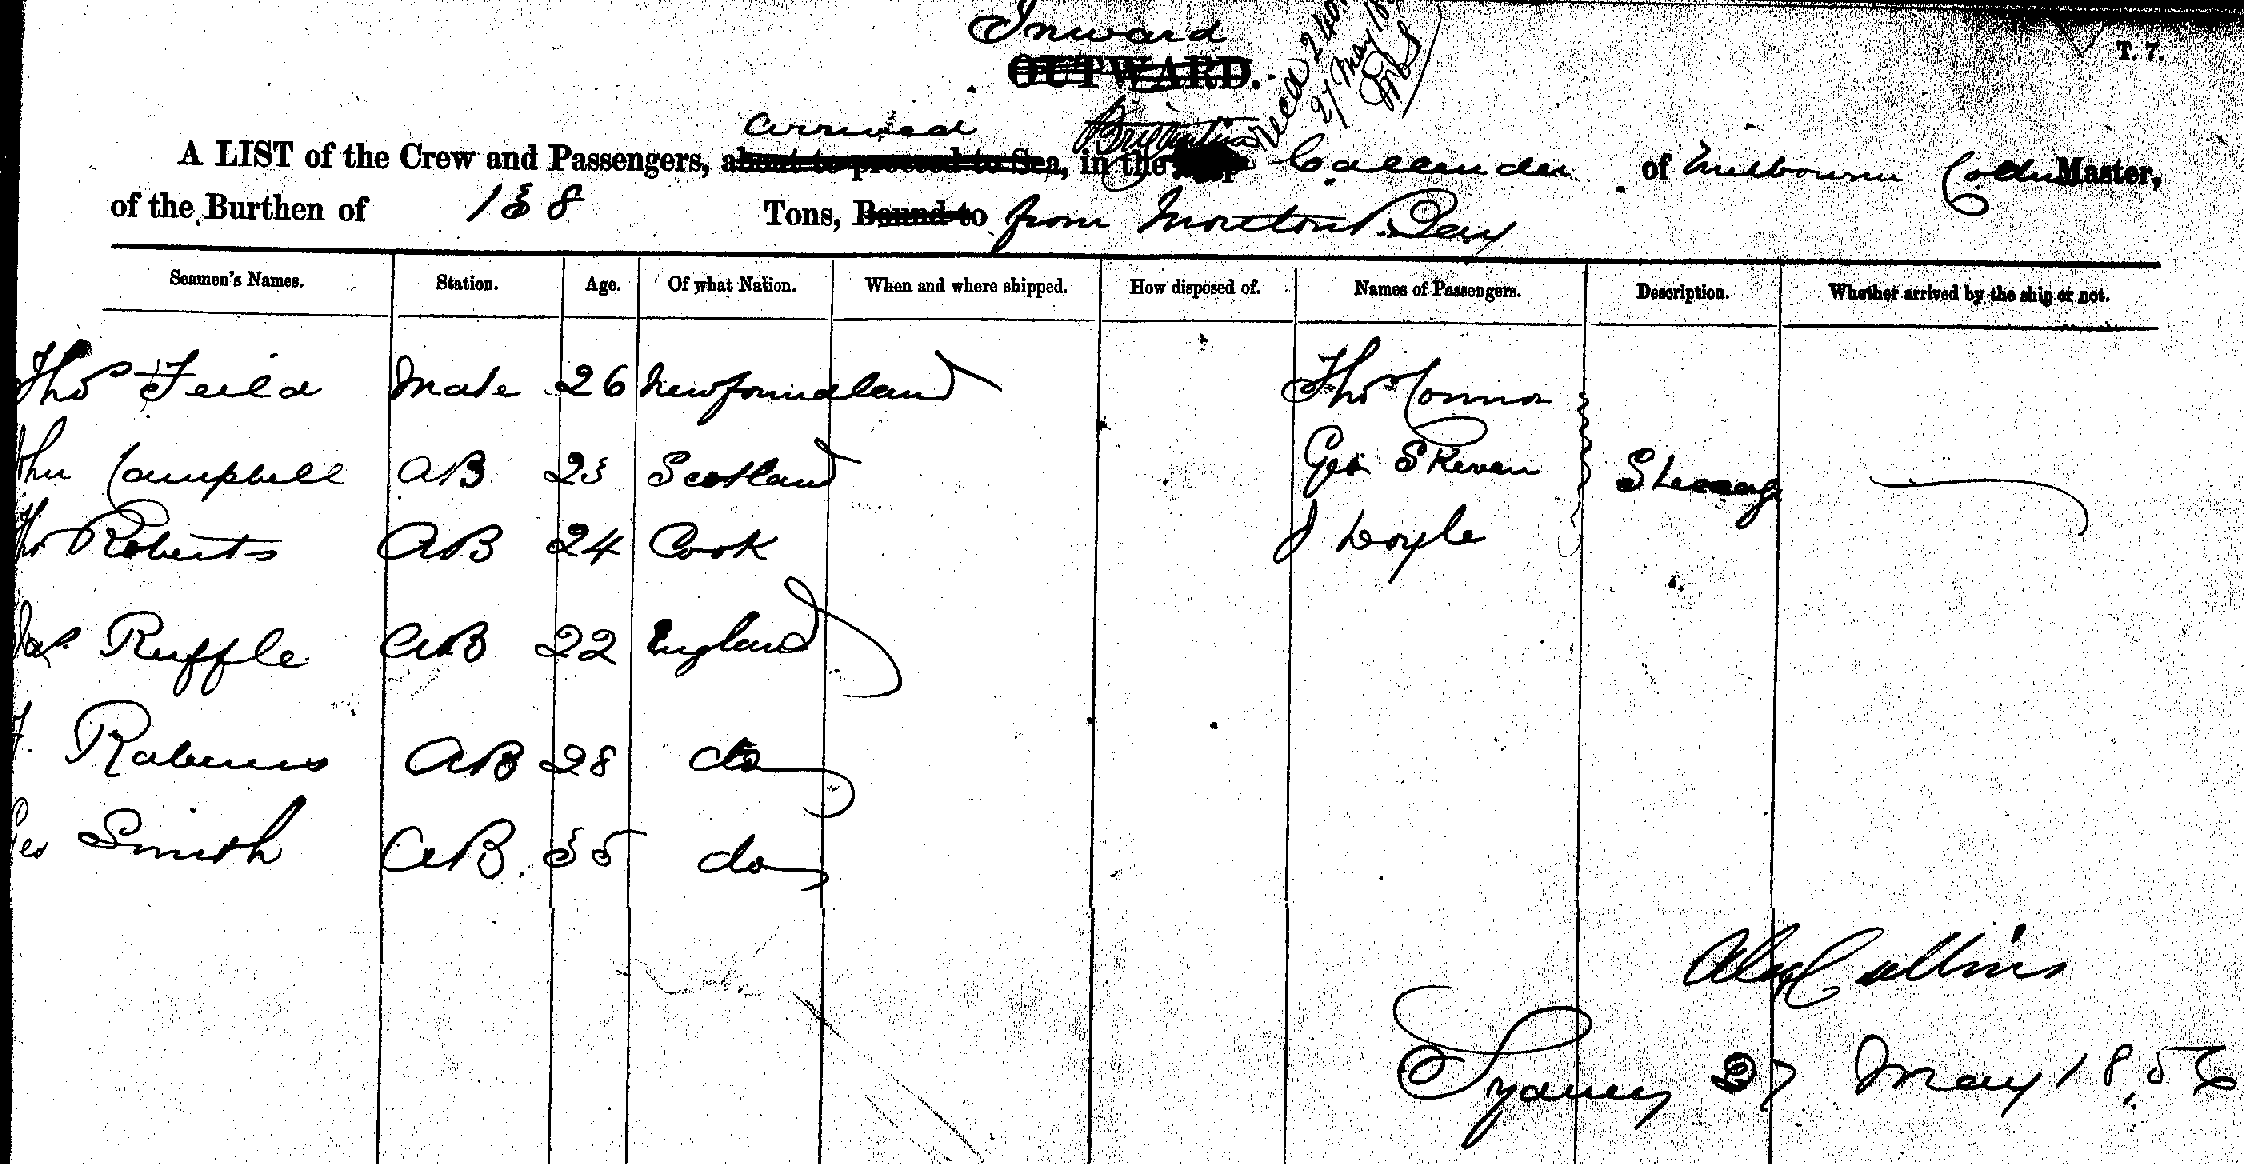 Inward
OUTWARD.
T. 7.
27 May
arrived
A LIST of the Crew and Passengers, about to proceed to Sea, in the Callender of Melbourne Master,
of the Burthen of 138 Tons, Bound to from Moreton Bay
Seamen's Names. Station. Age. Of what Nation. When and where shipped. How disposed of. Names of Passengers. Description. Whether arrived by the ship or not.
Thos Feild Mate 26 Newfoundland Thos Connor
John Campbell AB 23 Scotland Geo Skeven Steerage
Thos Roberts AB 24 Cook J Doyle
Jas Ruffle AB 22 England
AB 28 do
Geo Smith AB 35 do
Alex Collins
Sydney 27 May 1856